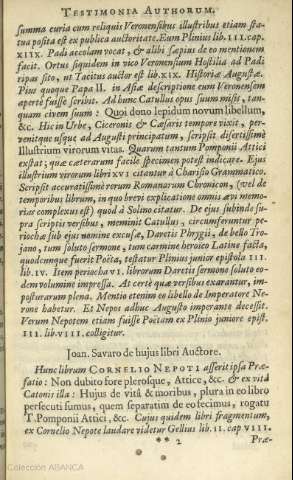 TESTIMONIA AUTHORUM.
summa curia cum reliquis Veronensibus illustribus etiam sta-
tua posita est ex publica auctoritate. Eum Plinius lib. III. cap.
XIIX. Padi accolam vocat, & alibi sæpius de eo mentionem
facit. Ortus siquidem in vico Veronensium Hostilia ad Padi
ripas sito, ut Tacitus auctor est lib. XIX. Historiæ Augustæ.
Pius quoque Papa II. in Asiæ descriptione eum Veronensem
apertè fuisse scribit. Ad hunc Catullus opus suum misit, tan-
quam civem suum: Quoi dono lepidum novum libellum,
&c. Hic in Urbe, Ciceronis & Cæsaris tempore vixit, per-
venitque usque ad Augusti principatum, scripsit disertissimè
Illustrium virorum vitas. Quarum tantum Pomponii Attici
exstat; quæ cæterarum facile specimen potest indicare. Ejus
illustrium virorum libri XVI citantur à Charisio Grammatico.
Scripsit accuratissimè rerum Romanarum Chronicon, (vel de
temporibus librum, in quo brevi explicatione omnis ævi memo-
riar complexus est) quod à Solino citatur. De ejus subinde su-
pra scriptis versibus, meminit Catullus; circumferuntur pe-
riochæ sub ejus nomine excusæ, Daretis Phrygii, de bello Tro-
jano, tum soluto sermone, tum carmine heroico Latine factæ,
quodcumque fuerit Poëta, testatur Plinius junior epistola III.
lib. IV. Item periocha VI. librorum Daretis sermone soluto eo-
dem volumine impressa. At certè quæ versibus exarantur, im-
posturam plena. Mentio etenim eo libello de Imperatore Ne-
rone habetur. Et Nepos adhuc Augusto imperante decessit.
Verum Nepotem etiam fuisse Poëtam ex Plinio juniore epist.
III. lib. VIII. colligitur.
Joan. Savaro de hujus libri Auctore.
Hunc librum CORNELIO NEPOTI asserit ipsa Præ-
fatio: Non dubito fore plerosque, Attice, &c. & ex vitâ
Catonis illa: Hujus de vitâ & moribus, plura in eo libro
persecuti sumus, quem separatim de eo fecimus, rogatu
T. Pomponii Attici, &c. Cujus quidem libri fragmentum,
ex Cornelio Nepote laudare videtur Gellius lib. II. cap VIII.
** 2
Præ-
Colección ABANCA